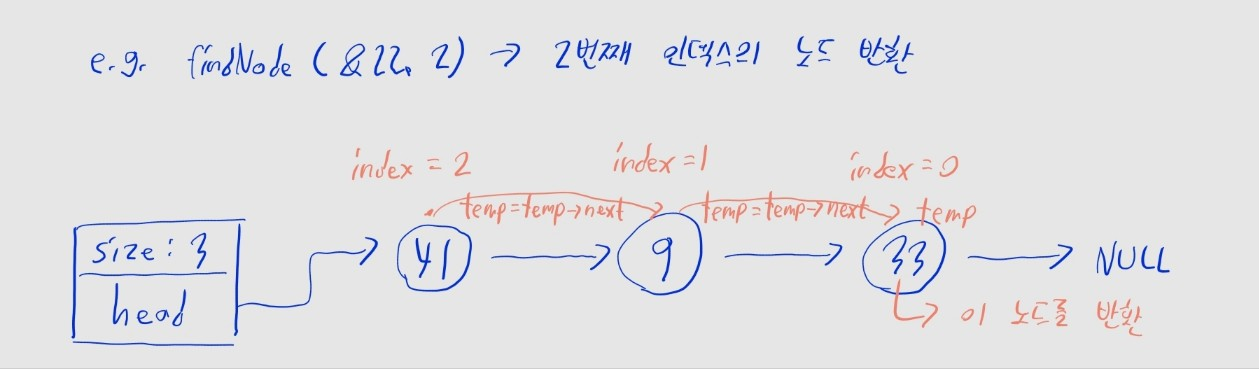 e.g. findNode (&ll, 2) → 2번째 인덱스의 노드 반환
index = 2 index = 1 index = 0
temp=temp→next temp=temp→next temp
size : 3
41 9 33 NULL
head
이 노드를 반환